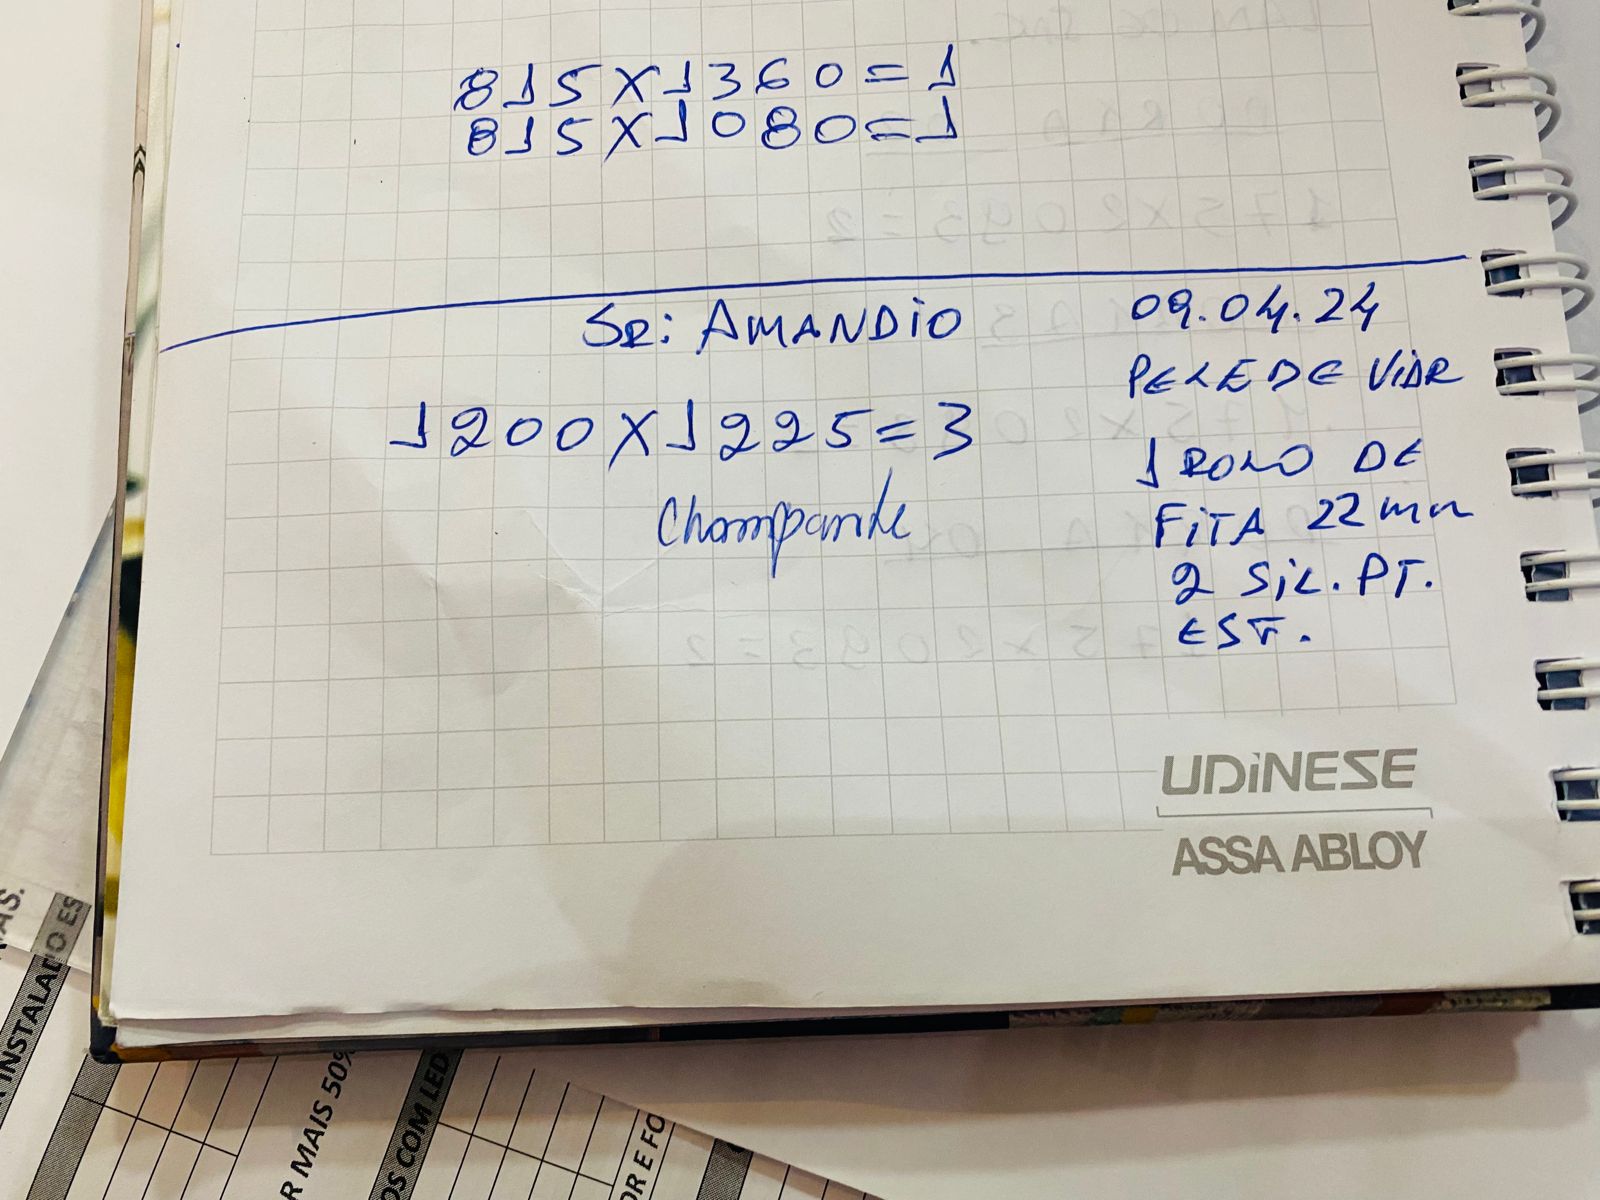 815X1360=1
815X1080=1
SR: AMANDiO
09.04.24
PELE DE ViDR
1200X1225=3
1 ROLO DE
FiTA 22 mm
2 SiL. PT.
EST.
UDiNESE
ASSA ABLOY
INSTALADO ES
R MAIS 50%
OS COM LED
OR E FO